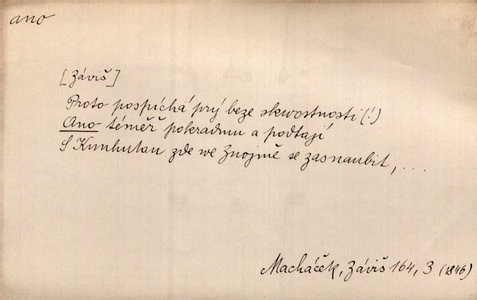 ano
[Záviš]
Proto pospíchá prý beze skwostnosti (!)
Ano téměř pokradmu a podtají
S Kunhutau zde we Znojmě se zasnaubit, ...
Macháček, Záviš 164, 3 (1846)